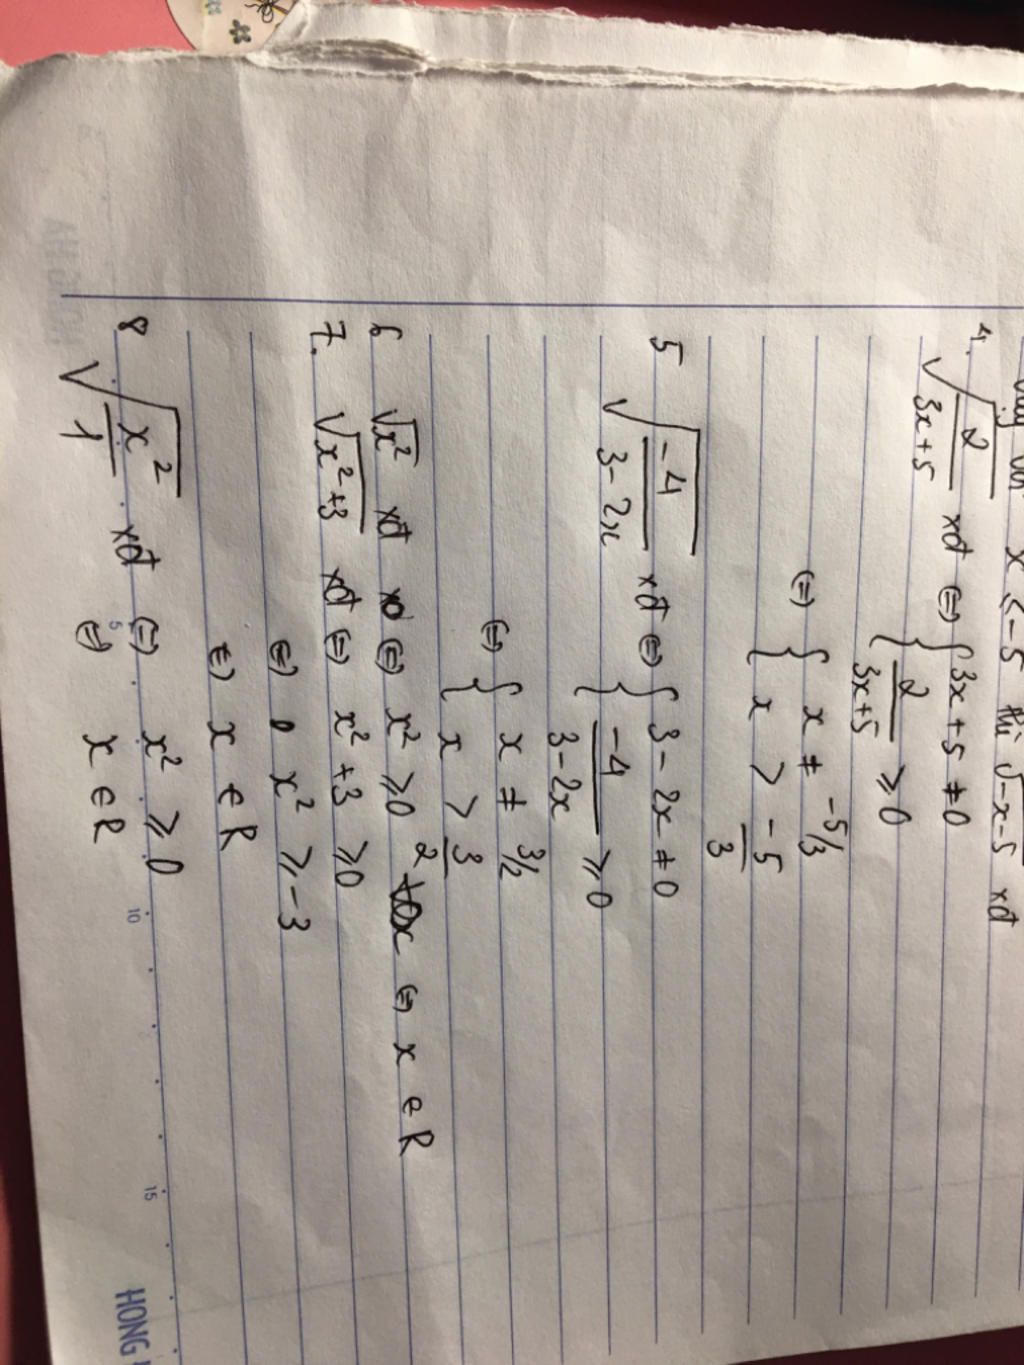 Vậy với x ≤ -5 thì √-x-5 xđ
4. √(2/(3x+5)) xđ ⇔ { 3x+5 ≠ 0
{ 2/(3x+5) ≥ 0
⇔ { x ≠ -5/3
{ x > -5/3
5 √(-4/(3-2x)) xđ ⇔ { 3-2x ≠ 0
{ -4/(3-2x) ≥ 0
⇔ { x ≠ 3/2
{ x > 3/2
6 √x² xđ ⇔ x² ≥ 0 ⇔ x ∈ R
7. √x²+3 xđ ⇔ x²+3 ≥ 0
⇔ x² ≥ -3
⇔ x ∈ R
8 √(x²/1) xđ ⇔ x² ≥ 0
⇔ x ∈ R
5 10 15
HONG